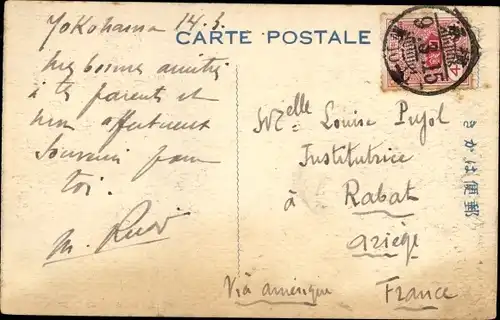 Yokohama 14.3.
CARTE POSTALE
Mes bonnes amitiés
à tes parents et
mon affectueux
souvenir pour
toi.
Mlle Louise Pujol
Institutrice
à
Rabat
Ariège
France
Via amérique
きかは便郵